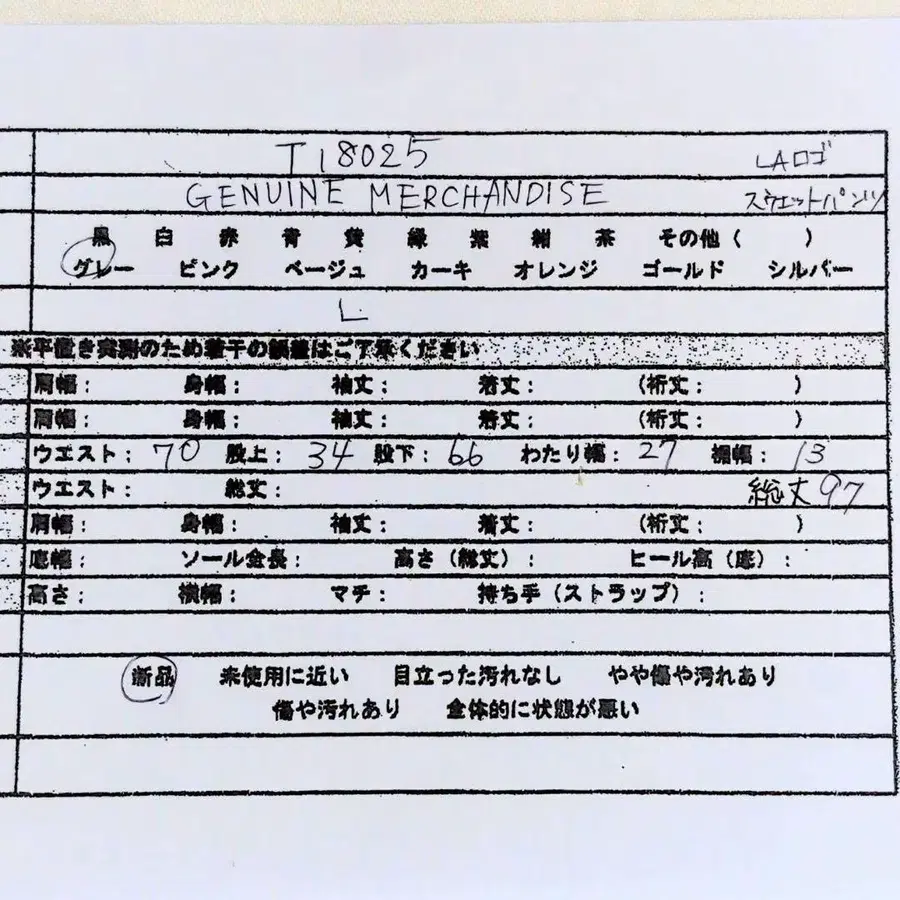 T18025 LAロゴ
GENUINE MERCHANDISE スウェットパンツ
黒 白 赤 青 黄 緑 紫 紺 茶 その他( )
グレー ピンク ベージュ カーキ オレンジ ゴールド シルバー
L
※平置き実測のため若干の誤差はご了承ください
肩幅: 身幅: 袖丈: 着丈: (裄丈: )
肩幅: 身幅: 袖丈: 着丈: (裄丈: )
ウエスト: 70 股上: 34 股下: 66 わたり幅: 27 裾幅: 13
ウエスト: 総丈: 総丈97
肩幅: 身幅: 袖丈: 着丈: (裄丈: )
底幅: ソール全長: 高さ(総丈): ヒール高(底):
高さ: 横幅: マチ: 持ち手(ストラップ):
新品 未使用に近い 目立った汚れなし やや傷や汚れあり
傷や汚れあり 全体的に状態が悪い